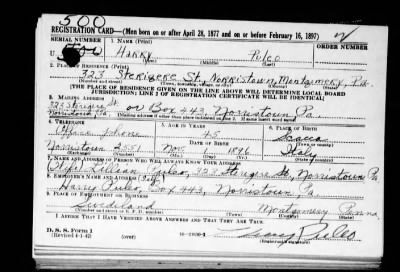 500
REGISTRATION CARD—(Men born on or after April 28, 1877 and on or before February 16, 1897)
SERIAL NUMBER 1. NAME (Print) ORDER NUMBER
U Harry Puleo
(First) (Middle) (Last)
2. PLACE OF RESIDENCE (Print)
323 Sterigere St, Norristown, Montgomery, Pa.
(Number and street) (Town) (County) (State)
[THE PLACE OF RESIDENCE GIVEN ON THE LINE ABOVE WILL DETERMINE LOCAL BOARD
JURISDICTION; LINE 2 OF REGISTRATION CERTIFICATE WILL BE IDENTICAL]
3. MAILING ADDRESS
or Box 243, Norristown Pa.
4. TELEPHONE 5. AGE IN YEARS 6. PLACE OF BIRTH
Office phone 45 Sciacca
Norristown 2551 Nov. 1 1896 Italy
7. NAME AND ADDRESS OF PERSON WHO WILL ALWAYS KNOW YOUR ADDRESS
(Wife) Lillian Puleo, 323 Sterigere St, Norristown Pa
8. EMPLOYER'S NAME AND ADDRESS
Harry Puleo, Box 243, Norristown, Pa.
9. PLACE OF EMPLOYMENT OR BUSINESS
Swedeland Montgomery Penna
(Number and street or R. F. D. number) (Town) (County) (State)
I AFFIRM THAT I HAVE VERIFIED ABOVE ANSWERS AND THAT THEY ARE TRUE.
D. S. S. Form 1
(Revised 4-1-42) Harry Puleo
(Registrant's signature)